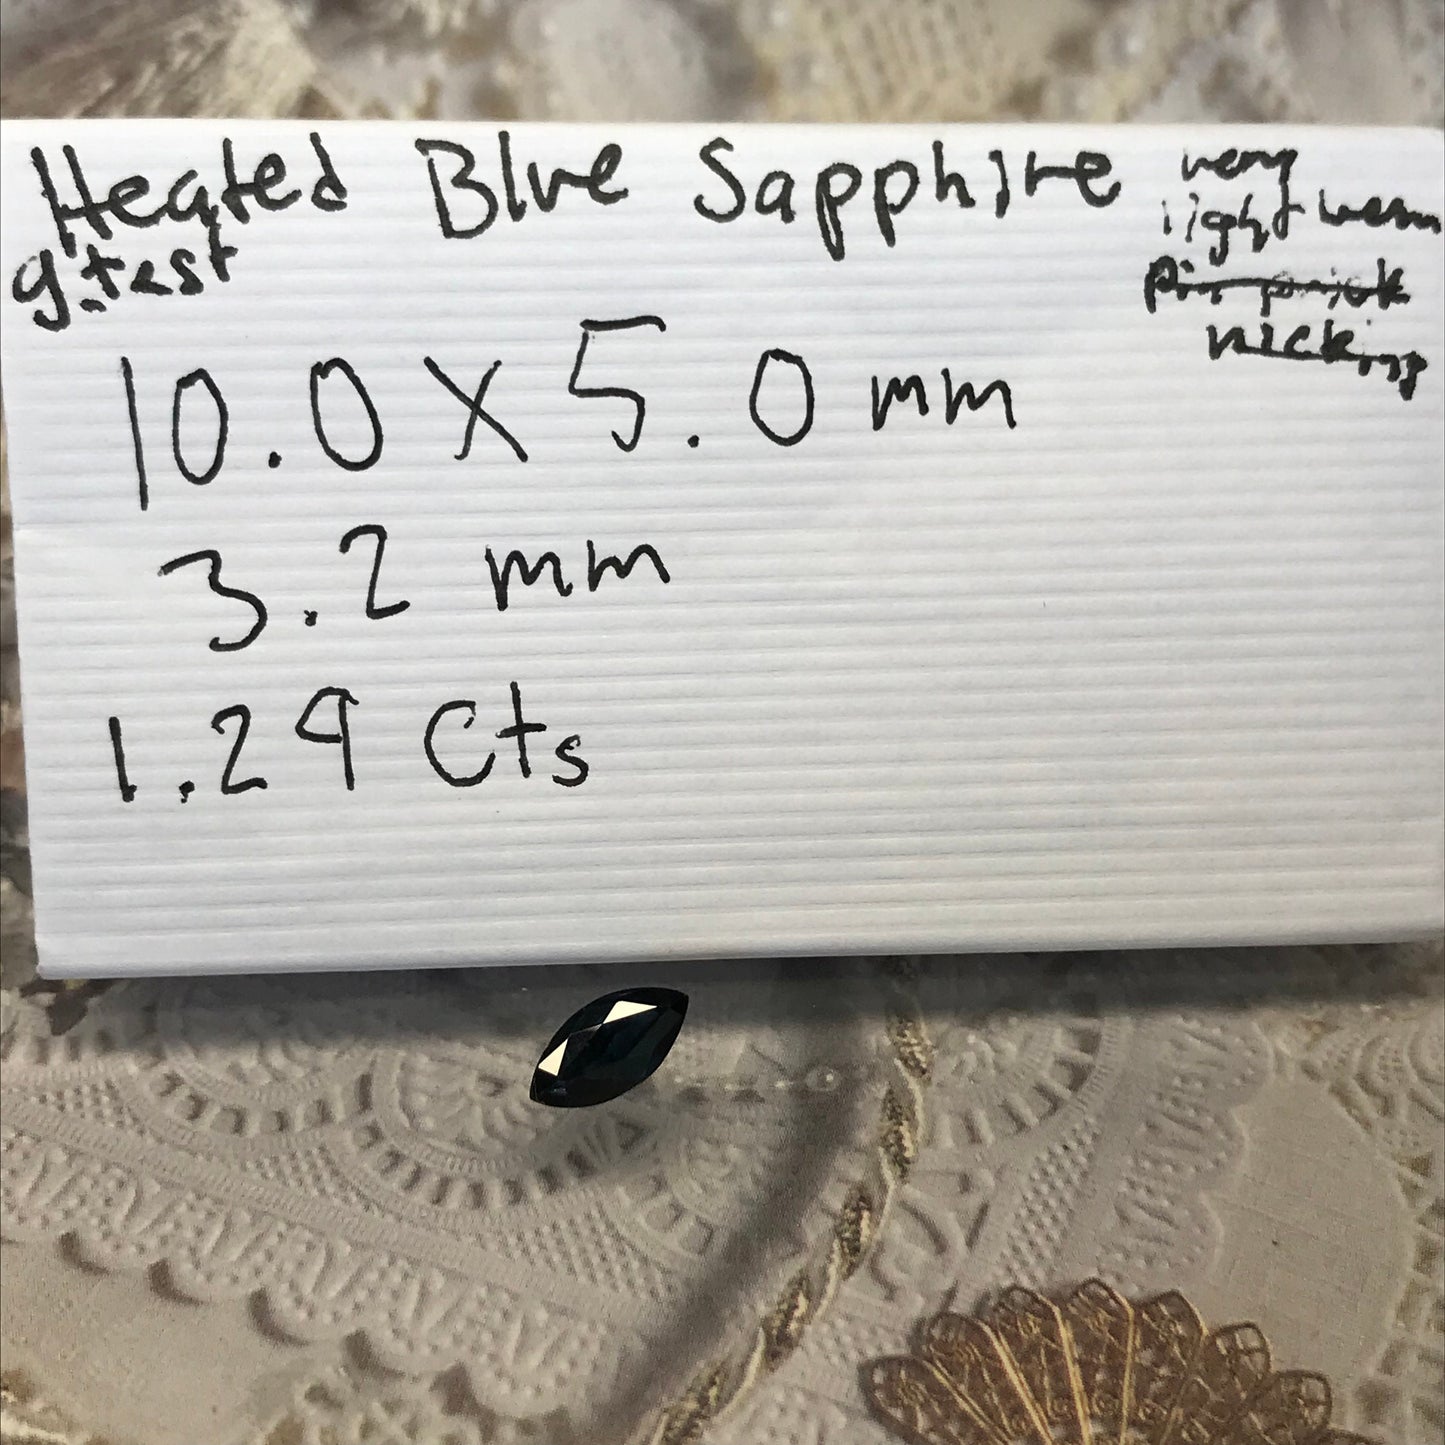 Heated Blue Sapphire very
light wear
g.test
pin prick
nicking
10.0 x 5.0 mm
3.2 mm
1.29 Cts